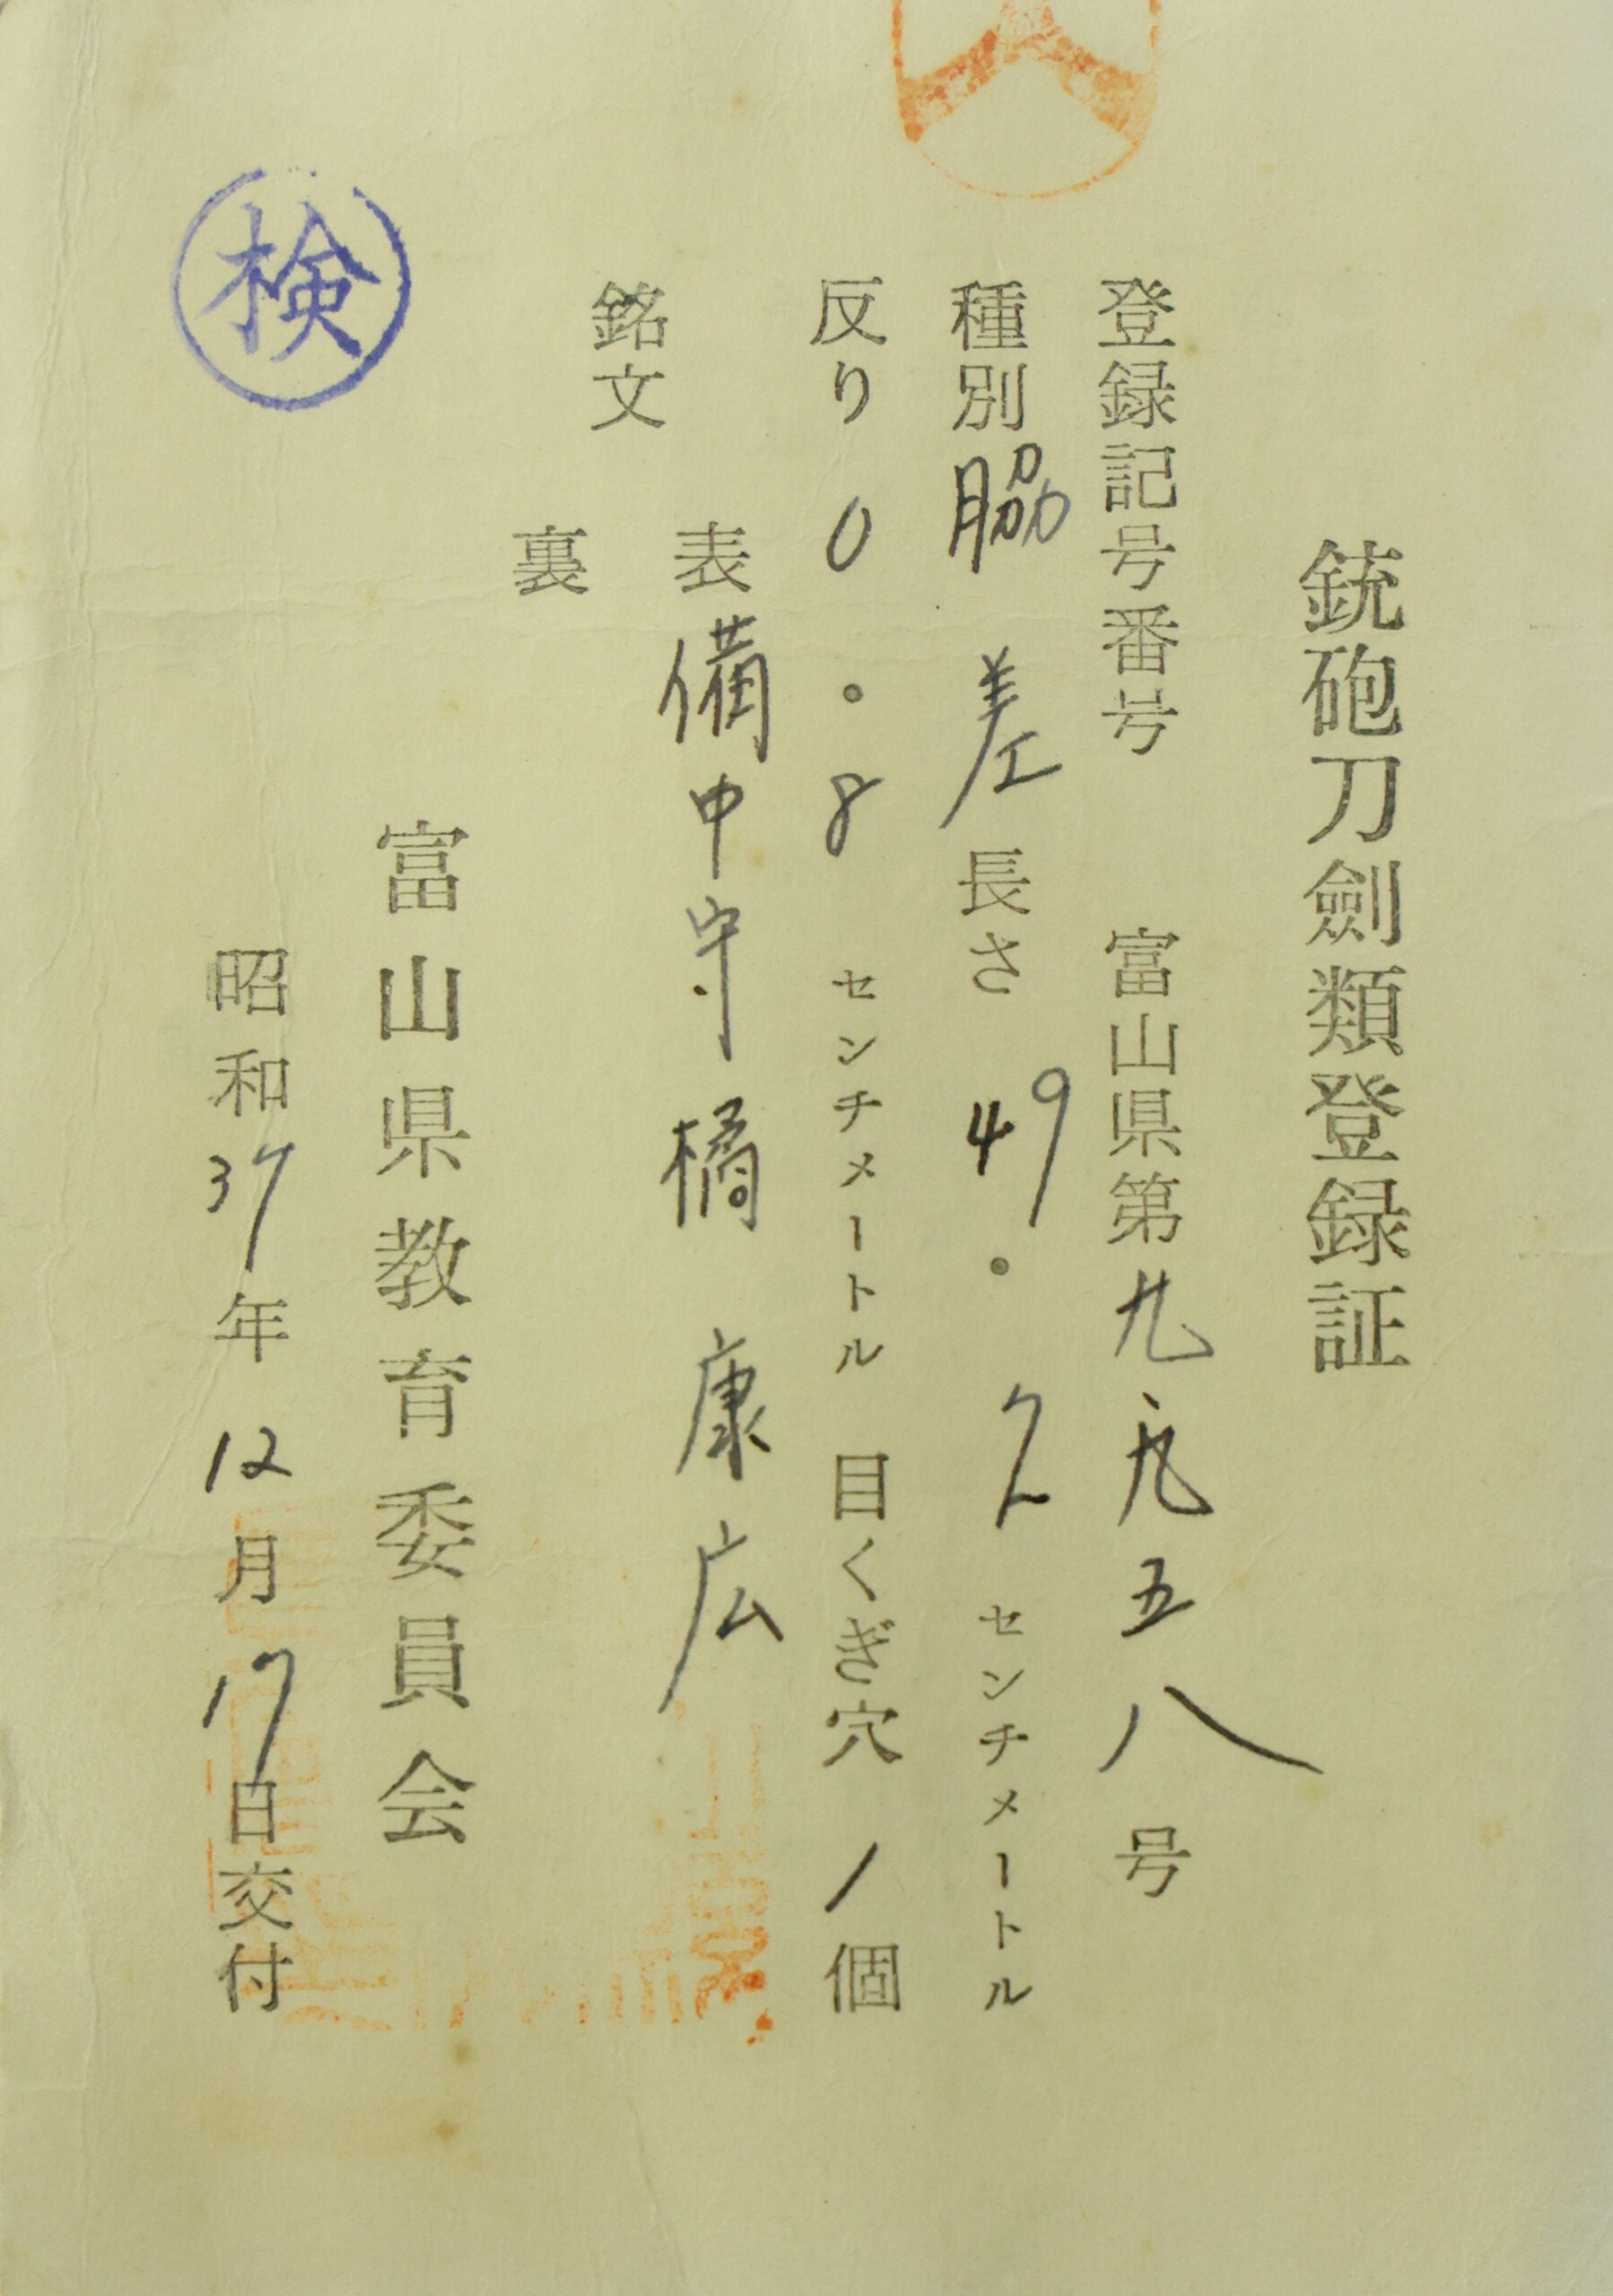 銃砲刀劍類登録証
登録記号番号 富山県第九九五八号
種別 脇差 長さ 49.2 センチメートル
反り 0.8 センチメートル 目くぎ穴 1個
銘文
表 備中守橘康広
裏
富山県教育委員会
昭和37年12月17日交付
検